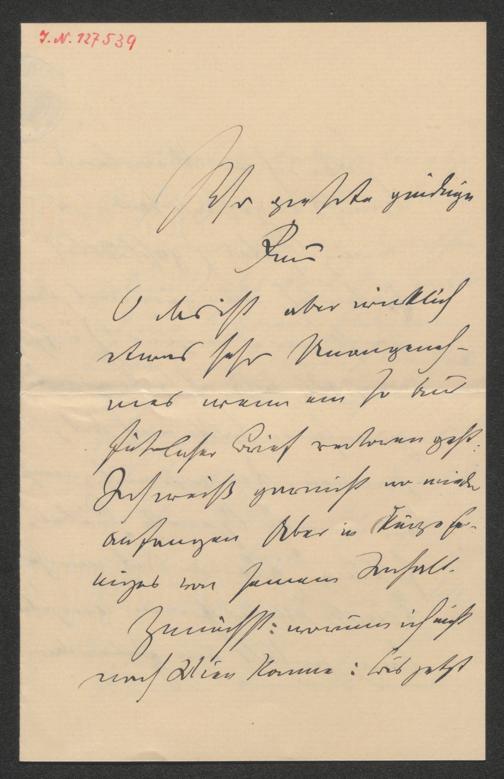 J. N. 127539
Sehr geehrte gnädige
Frau
O das ist aber wirklich
etwas sehr Unangeneh-
mes wenn ein so aus
führlicher Brief verloren geht.
Ich weiß garnicht wo wieder
anfangen Aber in Kürze ei-
niges von seinem Inhalt.
Zunächst: warum ich nicht
nach Wien komme: bis jetzt